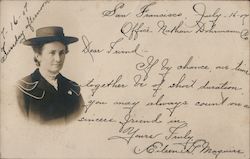 San Francisco, July-16-
Office, Nathan Dohrmann Co
Dear Friend:—
If by chance our
together be of short duration,
you may always count on
sincere friend in
Yours Truly,
Eileen K. Maguire
7-16-07
Sunday Afternoon